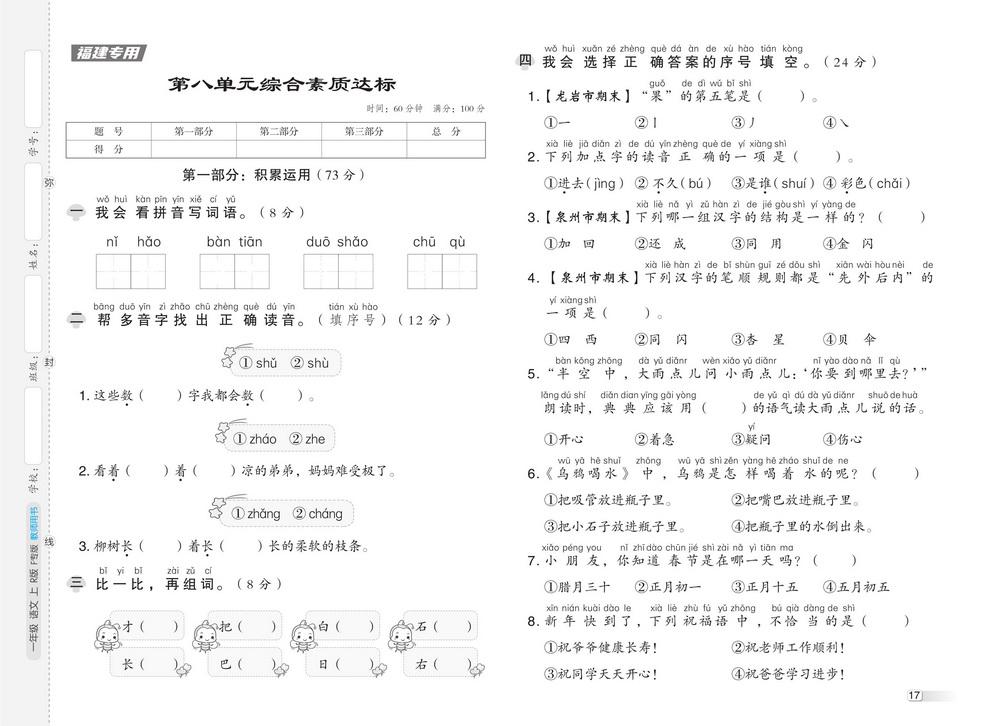 福建专用
第八单元综合素质达标
时间：60分钟 满分：100分
题 号 第一部分 第二部分 第三部分 总 分
得 分
第一部分：积累运用（73分）
wǒ huì kàn pīn yīn xiě cí yǔ
一 我会看拼音写词语。（8分）
nǐ hǎo bàn tiān duō shǎo chū qù
bāng duō yīn zì zhǎo chū zhèng què dú yīn tián xù hào
二 帮多音字找出正确读音。（填序号）（12分）
①shǔ ②shù
1. 这些数（ ）字我都会数（ ）。
①zháo ②zhe
2. 看着（ ）着（ ）凉的弟弟，妈妈难受极了。
①zhǎng ②cháng
3. 柳树长（ ）着长（ ）长的柔软的枝条。
bǐ yi bǐ zài zǔ cí
三 比一比，再组词。（8分）
才（ ） 把（ ） 白（ ） 石（ ）
长（ ） 巴（ ） 日（ ） 右（ ）
wǒ huì xuǎn zé zhèng què dá àn de xù hào tián kòng
四 我会选择正确答案的序号填空。（24分）
guǒ de dì wǔ bǐ shì
1.【龙岩市期末】“果”的第五笔是（ ）。
①一 ②丨 ③丿 ④㇏
xià liè jiā diǎn zì de dú yīn zhèng què de yí xiàng shì
2. 下列加点字的读音正确的一项是（ ）。
①进去（jìng） ②不久（bú） ③是谁（shuí） ④彩色（chǎi）
xià liè nǎ yì zǔ hàn zì de jié gòu shì yí yàng de
3.【泉州市期末】下列哪一组汉字的结构是一样的？（ ）
①加 回 ②还 成 ③同 用 ④金 闪
xià liè hàn zì de bǐ shùn guī zé dōu shì xiān wài hòu nèi de
4.【泉州市期末】下列汉字的笔顺规则都是“先外后内”的
yí xiàng shì
一项是（ ）。
①四 西 ②同 闪 ③杏 星 ④贝 伞
bàn kōng zhōng dà yǔ diǎnr wèn xiǎo yǔ diǎnr nǐ yào dào nǎ lǐ qù
5.“半空中，大雨点儿问小雨点儿：‘你要到哪里去？’”
lǎng dú shí diǎn dian yīng gāi yòng de yǔ qì dú dà yǔ diǎnr shuō de huà
朗读时，典典应该用（ ）的语气读大雨点儿说的话。
yí
①开心 ②着急 ③疑问 ④伤心
wū yā hē shuǐ zhōng wū yā shì zěn yàng hē zháo shuǐ de ne
6.《乌鸦喝水》中，乌鸦是怎样喝着水的呢？（ ）
①把吸管放进瓶子里。 ②把嘴巴放进瓶子里。
③把小石子放进瓶子里。 ④把瓶子里的水倒出来。
xiǎo péng you nǐ zhī dào chūn jié shì zài nǎ yì tiān ma
7. 小朋友，你知道春节是在哪一天吗？（ ）
①腊月三十 ②正月初一 ③正月十五 ④五月初五
xīn nián kuài dào le xià liè zhù fú yǔ zhōng bú qià dàng de shì
8. 新年快到了，下列祝福语中，不恰当的是（ ）
①祝爷爷健康长寿！ ②祝老师工作顺利！
③祝同学天天开心！ ④祝爸爸学习进步！
17
学号：
姓名：
班级：
学校：
弥
封
线
一年级 语文 上 R版 F专版 教师用书